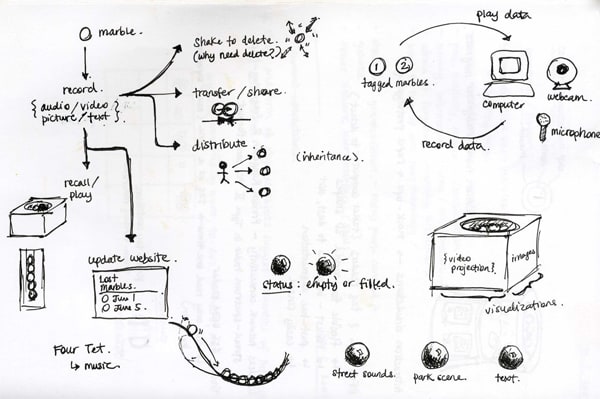 marble.
record
{ audio/video
picture/text }.
recall/
play
shake to delete.
(why need delete?)
transfer/share
distribute.
(inheritance).
update website.
Lost
Marbles.
June 1
June 5.
Four Tet.
↳ music.
play data
1 2
tagged marbles.
computer
webcam.
microphone
record data.
status: empty or filled.
{video
projection}
images
visualizations.
street sounds. park scene. text.